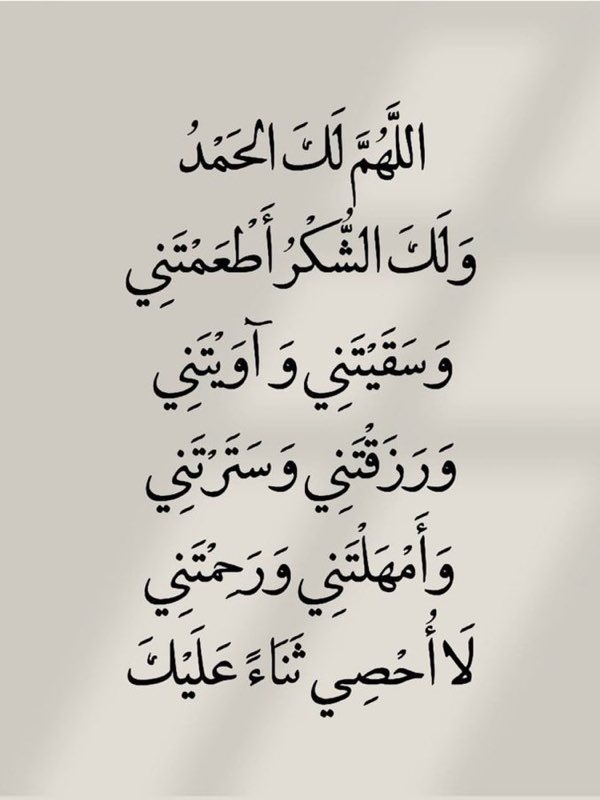 اللَّهُمَّ لَكَ الحَمْدُ
وَلَكَ الشُّكْرُ أَطْعَمْتَنِي
وَسَقَيْتَنِي وَ آوَيْتَنِي
وَرَزَقْتَنِي وَسَتَرْتَنِي
وَأَمْهَلْتَنِي وَرَحِمْتَنِي
لَا أُحْصِي ثَنَاءً عَلَيْكَ